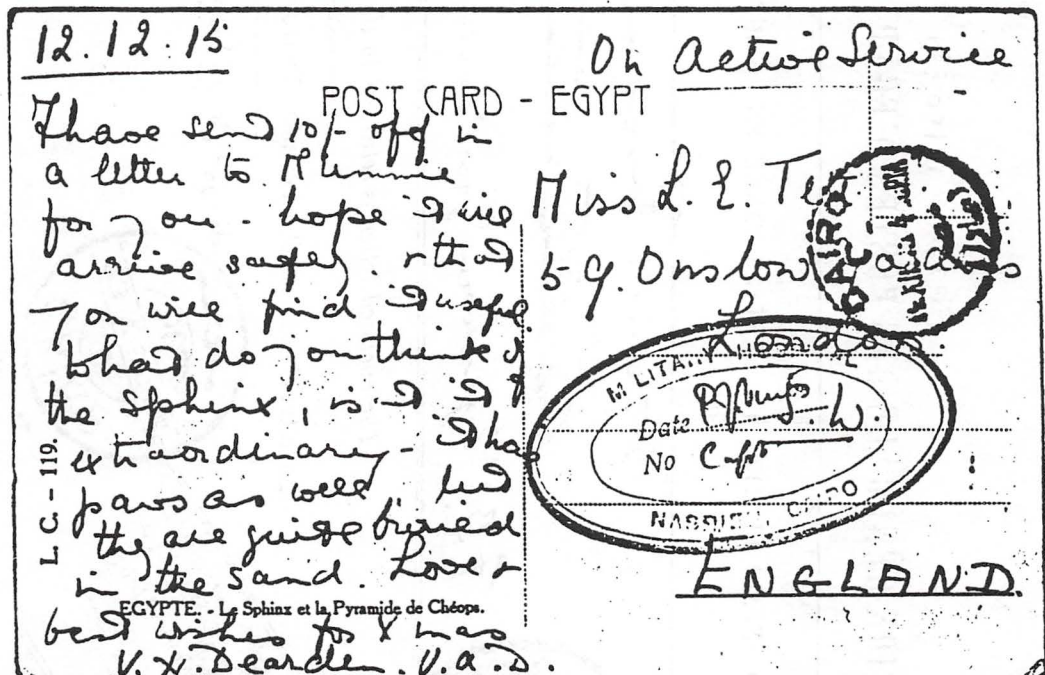 12.12.15
On Active Service
POST CARD - EGYPT
I have send 10/- off in
a letter to Mummie
for you - hope it will
arrive safely. & that
you will find it useful.
What do you think of
the Sphinx, is it
extraordinary - It has
paws as well, but
they are quite buried
in the sand. Love &
best wishes for Xmas
V. H. Dearden. V.A.D.
L. C. - 119.
EGYPTE. - Le Sphinx et la Pyramide de Chéops.
Miss L. E.
59. Onslow
London.
ENGLAND.
CAIRO
MILITARY
Date
No Capt
CAIRO